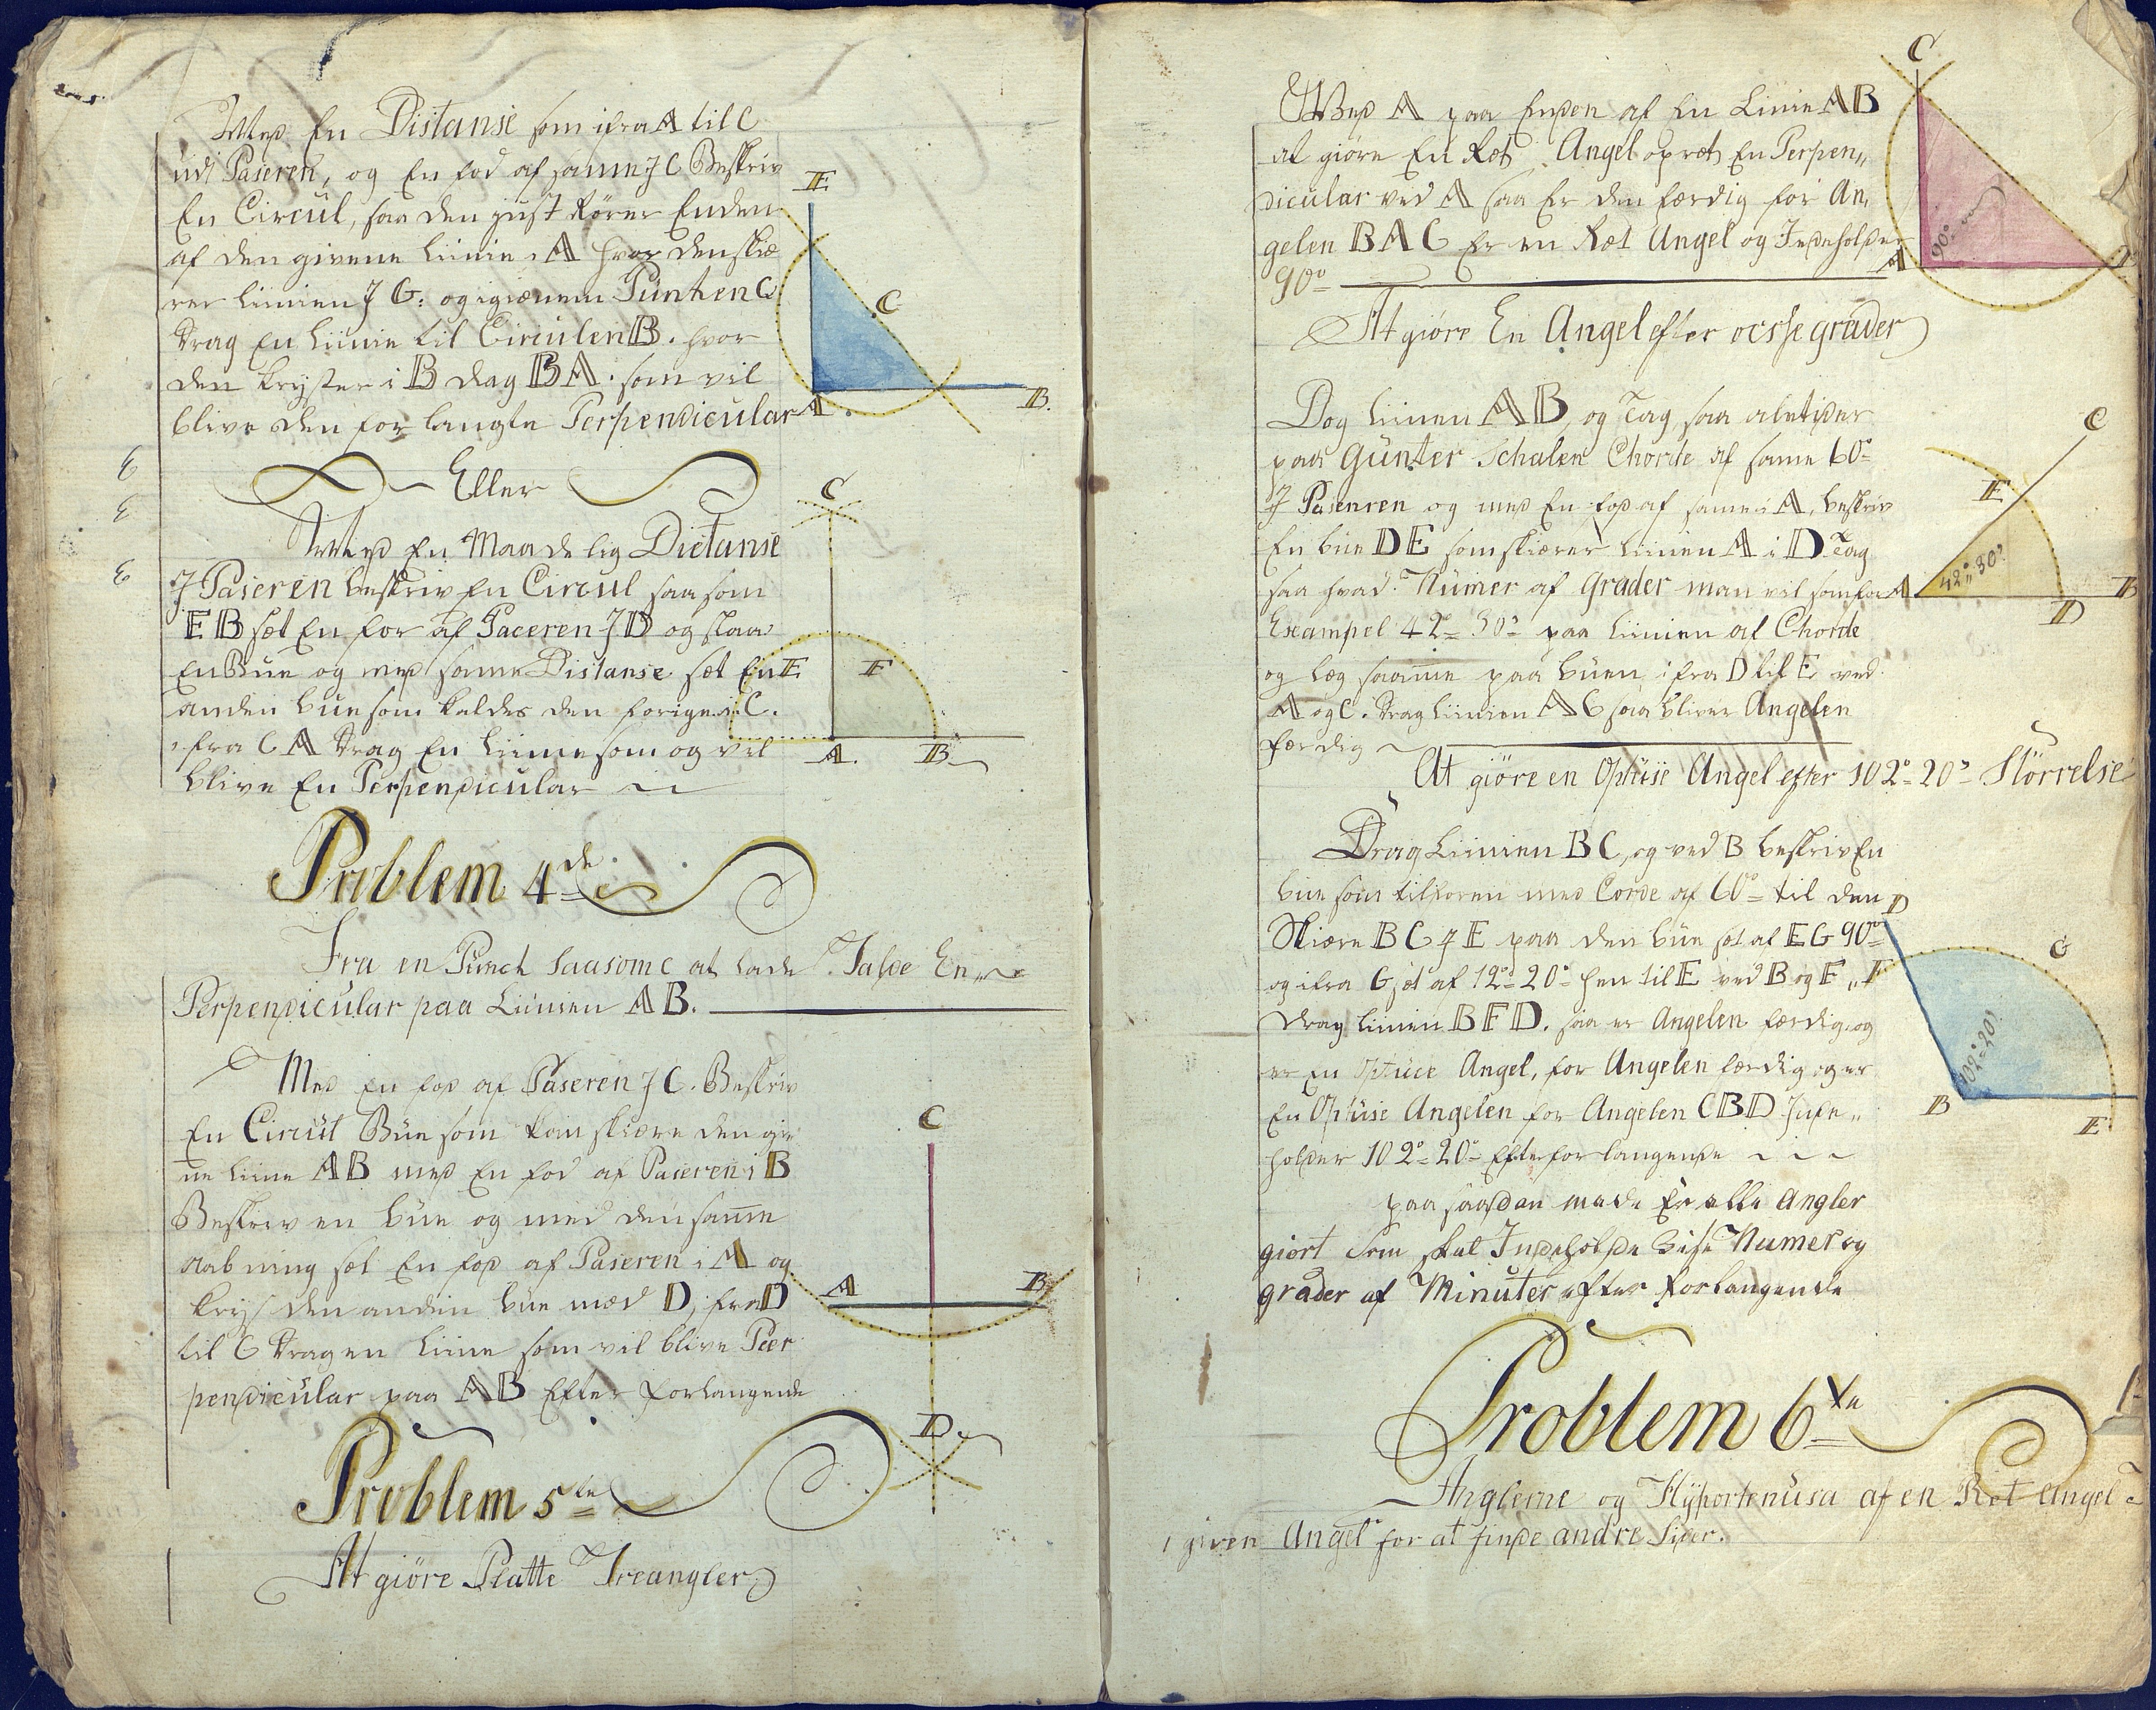 Med En Distanse som ifra A til C
udi Paseren, og En fod af samme J C Beskriv
En Circul, saa den just Rører Enden
af den givene Linie A hvor den skiæ
rer Linien J G: og igiænem Punten C
drag En Linie til Circulen B. hvor
den krydser i B drag BA. som vil
blive den forlangte Perpendicular
E
C
A.
B.
Eller
Med En Maadelig Dictanse
J Paseren beskriv En Circul saa som
EB sæt En for af Paceren J D og slaa
En Bue og med same Distanse sæt En
anden bue som kaldes den forige C.
ifra C A drag En Linie som og vil
blive En Perpendicular
C
E
F
A.
B
Problem 4de
Fra en Punct saasom C at lade Falde En
Perpendicular paa Linien AB.
Med En fod af Paseren J C. Beskriv
En Circul Bue som kan skiære den giv
ne Linie AB med En fod af Paseren i B
Beskriv en bue og med den samme
aabning sæt En fod af Paseren i A og
kryds den anden bue med D, fra D
til C drag en Linie som vil blive Per
pendicular paa AB Efter forlangende
C
A
B
D
Problem 5te
At giøre Platte Treangler
Ved A paa Enden af En Linie AB
at giøre En Ret Angel opret En Perpen,,
dicular ved A saa Er den færdig for An,
gelen BAC Er en Ret Angel og Indeholder
90°
C
A
90°
At giøre En Angel efter grader
Dog Linien AB, og Tag saa aletider
paa Gunter Schalen Chorde af same 60°
J Paseren og med En fod af same i A, beskriv
En bue DE som skiærer Linien A i D Tag
saa hvad Numer af grader man vil som for
Exampel 42° 30° paa Linien af Chorde
og læg saamme paa buen ifra D til E ved
A og C. drag Linien AC saa bliver Angelen
færdig
C
E
A
42° 30°
D
B
At giøre en Optuse Angel efter 102° 20° Størrelse
Drag Linien BC, og ved B beskriv En
bue som tilforen med Corde af 60° til den
Skiære BC J E paa den bue sæt af EG 90°
og ifra G sæt af 12° 20° hen til E ved B og F
drag Linien BFD. saa er Angelen færdig og
er En Optuce Angel, for Angelen færdig og er
En Optuse Angelen for Angelen CBD Inde,,
holder 102° 20° Efter forlangende
D
G
F
102° 20°
B
E
paa saadan made Er alle Angler
giort Som skal Indeholde Numer og
grader af Minuter efter forlangende
Problem 6te
Anglerne og Hyportenusa af en Ret Angel
given Angel for at finde andre Sider.